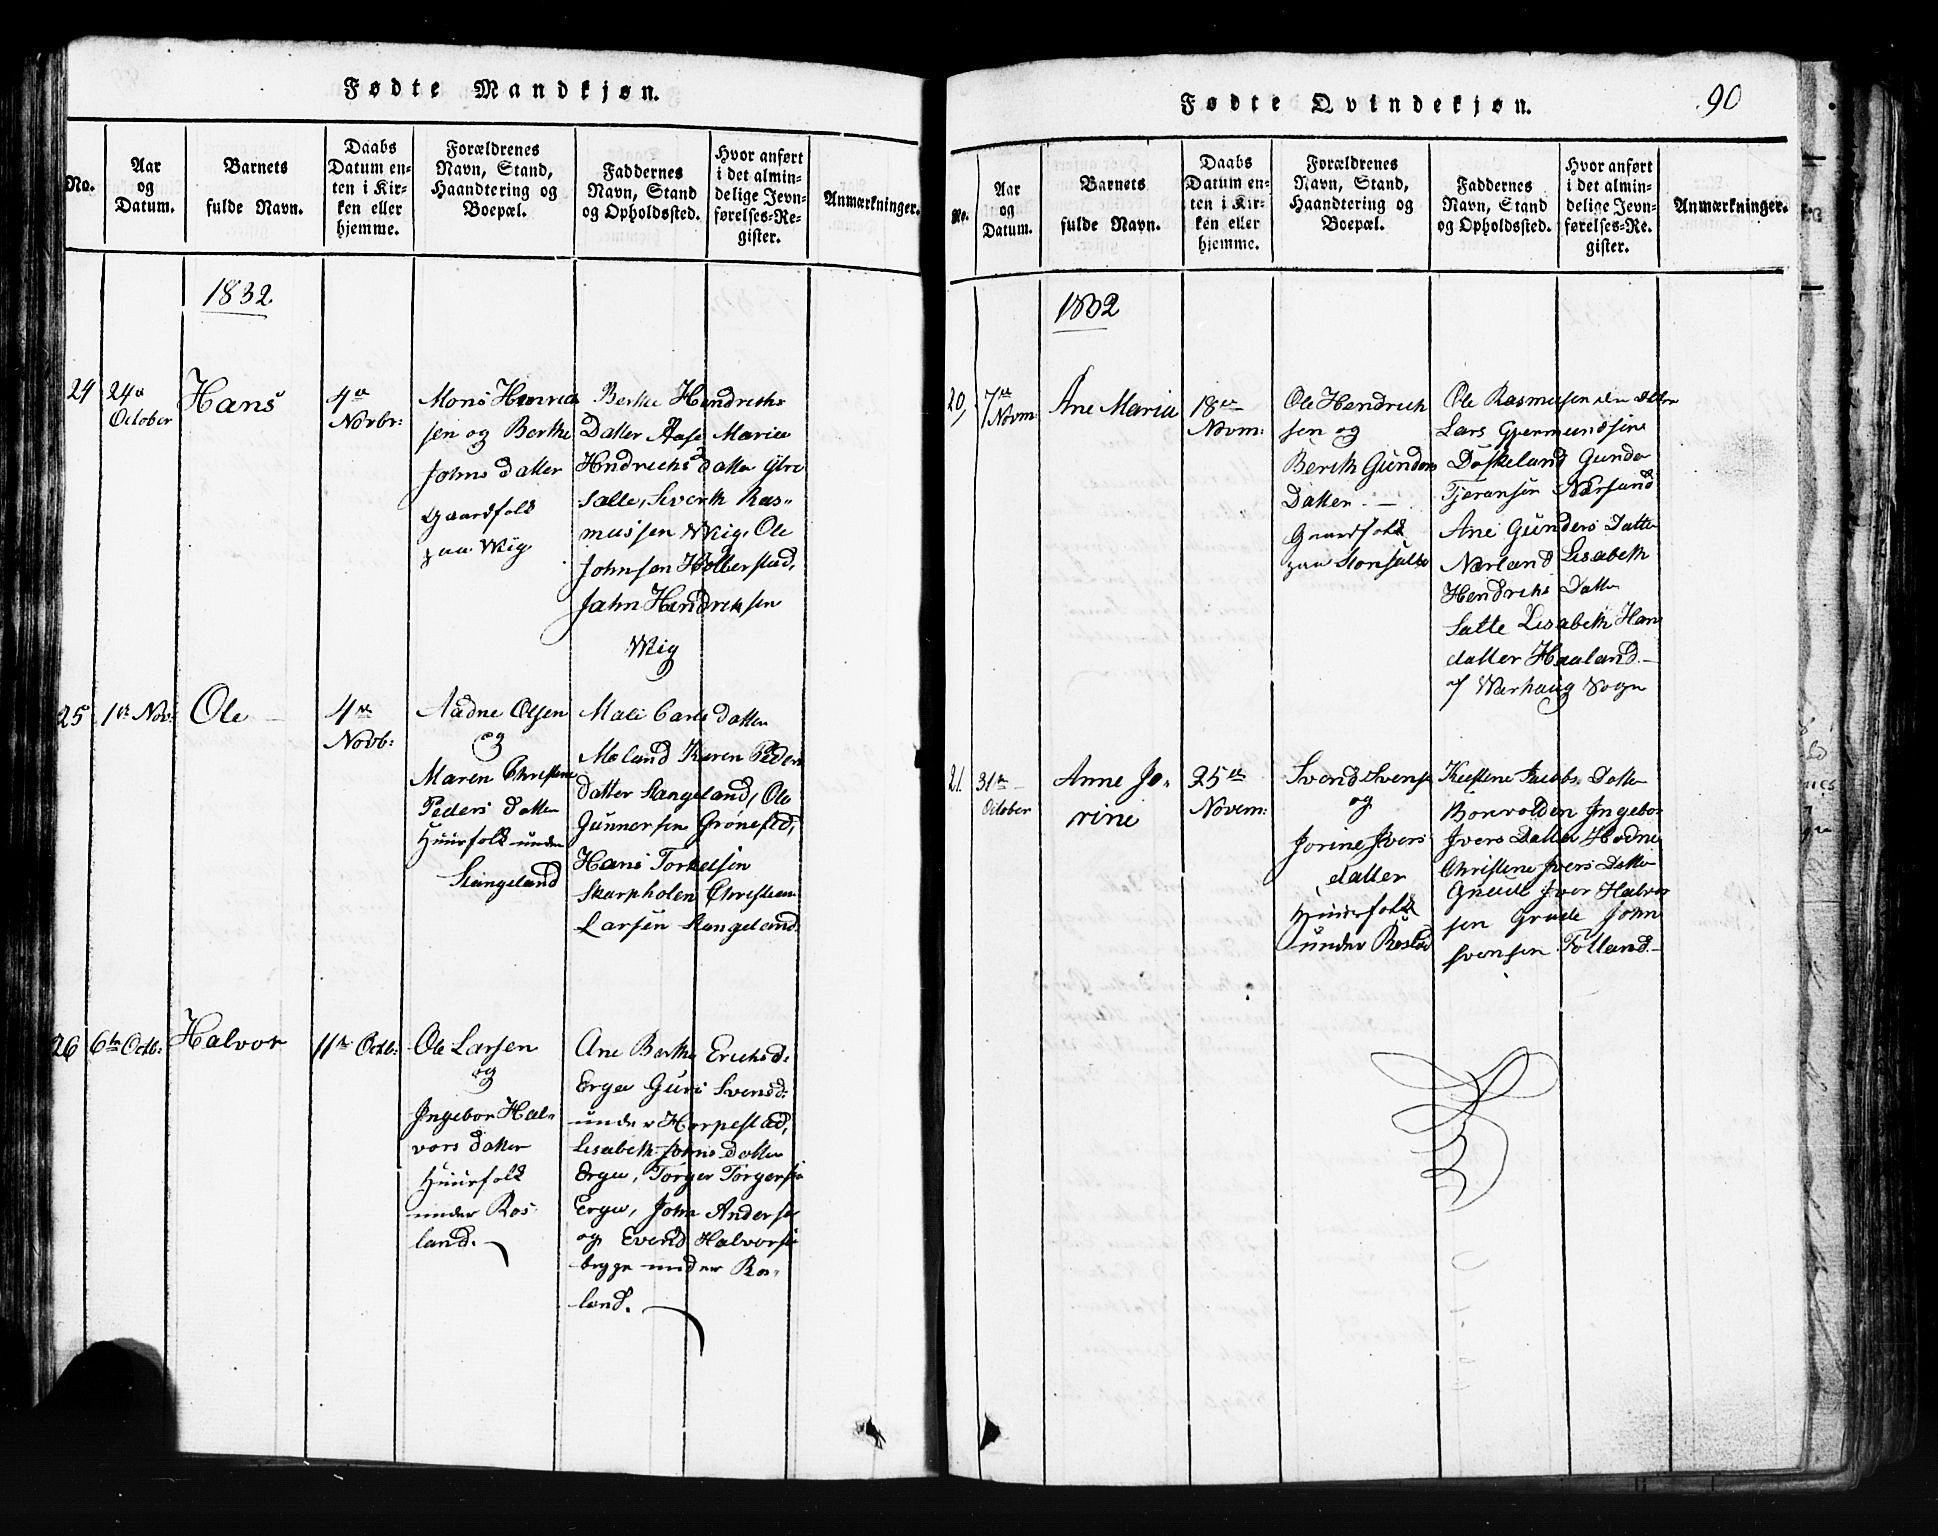 Fødte Mandkjøn.
No.
Aar
og
Datum.
Barnets
fulde Navn.
Daabs
Datum en-
ten i Kir-
ken eller
hjemme.
Forældrenes
Navn, Stand,
Haandtering og
Boepæl.
Faddernes
Navn, Stand
og Opholdssted.
Hvor anført
i det almin-
delige Jevn-
førelses-Re-
gister.
Anmærkninger.
1832
24
24de
October
Hans
4de
Novbr:
Mons Henrich
sen og Berthe
Johns datter
Gaardfolk
paa Wiig
Berthe Hendrichs
Datter Aase Maria
Hndrichs datter Ytre
Salte, Siverth Ras-
mussen Wiig, Ole
Johnsen Holberstad,
Jahn Hendriksen
Wiig
25
1de Nov:
Ole
4de
Novb:
Aadne Olsen
og
Maren Christine
Peders datter
Huusfolk under
Stangeland
Mali Carls datter
Meland Karen Peders
datter Stangeland, Ole
Gunnersen Grønestad,
Hans Torkelsen
Skarpholen Christian
Larsen Stangeland.
26
6te Octb:
Halvor
11te Octb:
Ole Larsen
og
Ingebor Hal-
vors datter
Huusfolk
under Ros-
land.
Ane Berthe Erichsd:
Erga Guri Svensd:
under Horpestad,
Lisabeth Johns Datter
Erga, Torger Torgersen
Erga, John Andersen
og Evend Halvorsen
begge under Ros-
land.
Fødte Qvindekjøn.
90
No.
Aar
og
Datum.
Barnets
fulde Navn.
Daabs
Datum en-
ten i Kir-
ken eller
hjemme.
Forældrenes
Navn, Stand,
Haandtering og
Boepæl.
Faddernes
Navn, Stand
og Opholdssted.
Hvor anført
i det almin-
delige Jevn-
førelses-Re-
gister.
Anmærkninger.
1832
20,
7de
Novm:
Ane Maria
18de
Novm:
Ole Hendrich
sen og
Berith Gunders
Datter
Gaardfolk
paa Storsalte
Ole Rasmussen
Lars Gjermundsen
Døskeland Gunder
Tjeransen Nærland
Ane Gunders Datter
Nærland Lisabeth
Hendrichs Datter
Salte Lisabeth Hans
datter Haaland
af Warhaug Sogn
21.
31te
October
Anne Jo-
rine
25de
Novem:
Svend Svends
og
Jorine Ivers
datter
Huusfolk
under Rosland
Kirstene Jacobs Datter
Borevolden Ingebor
Ivers Datter Hodne
Christene Ivers Datter
Grude Iver Halvor
sen Grude John
Svensen Folland